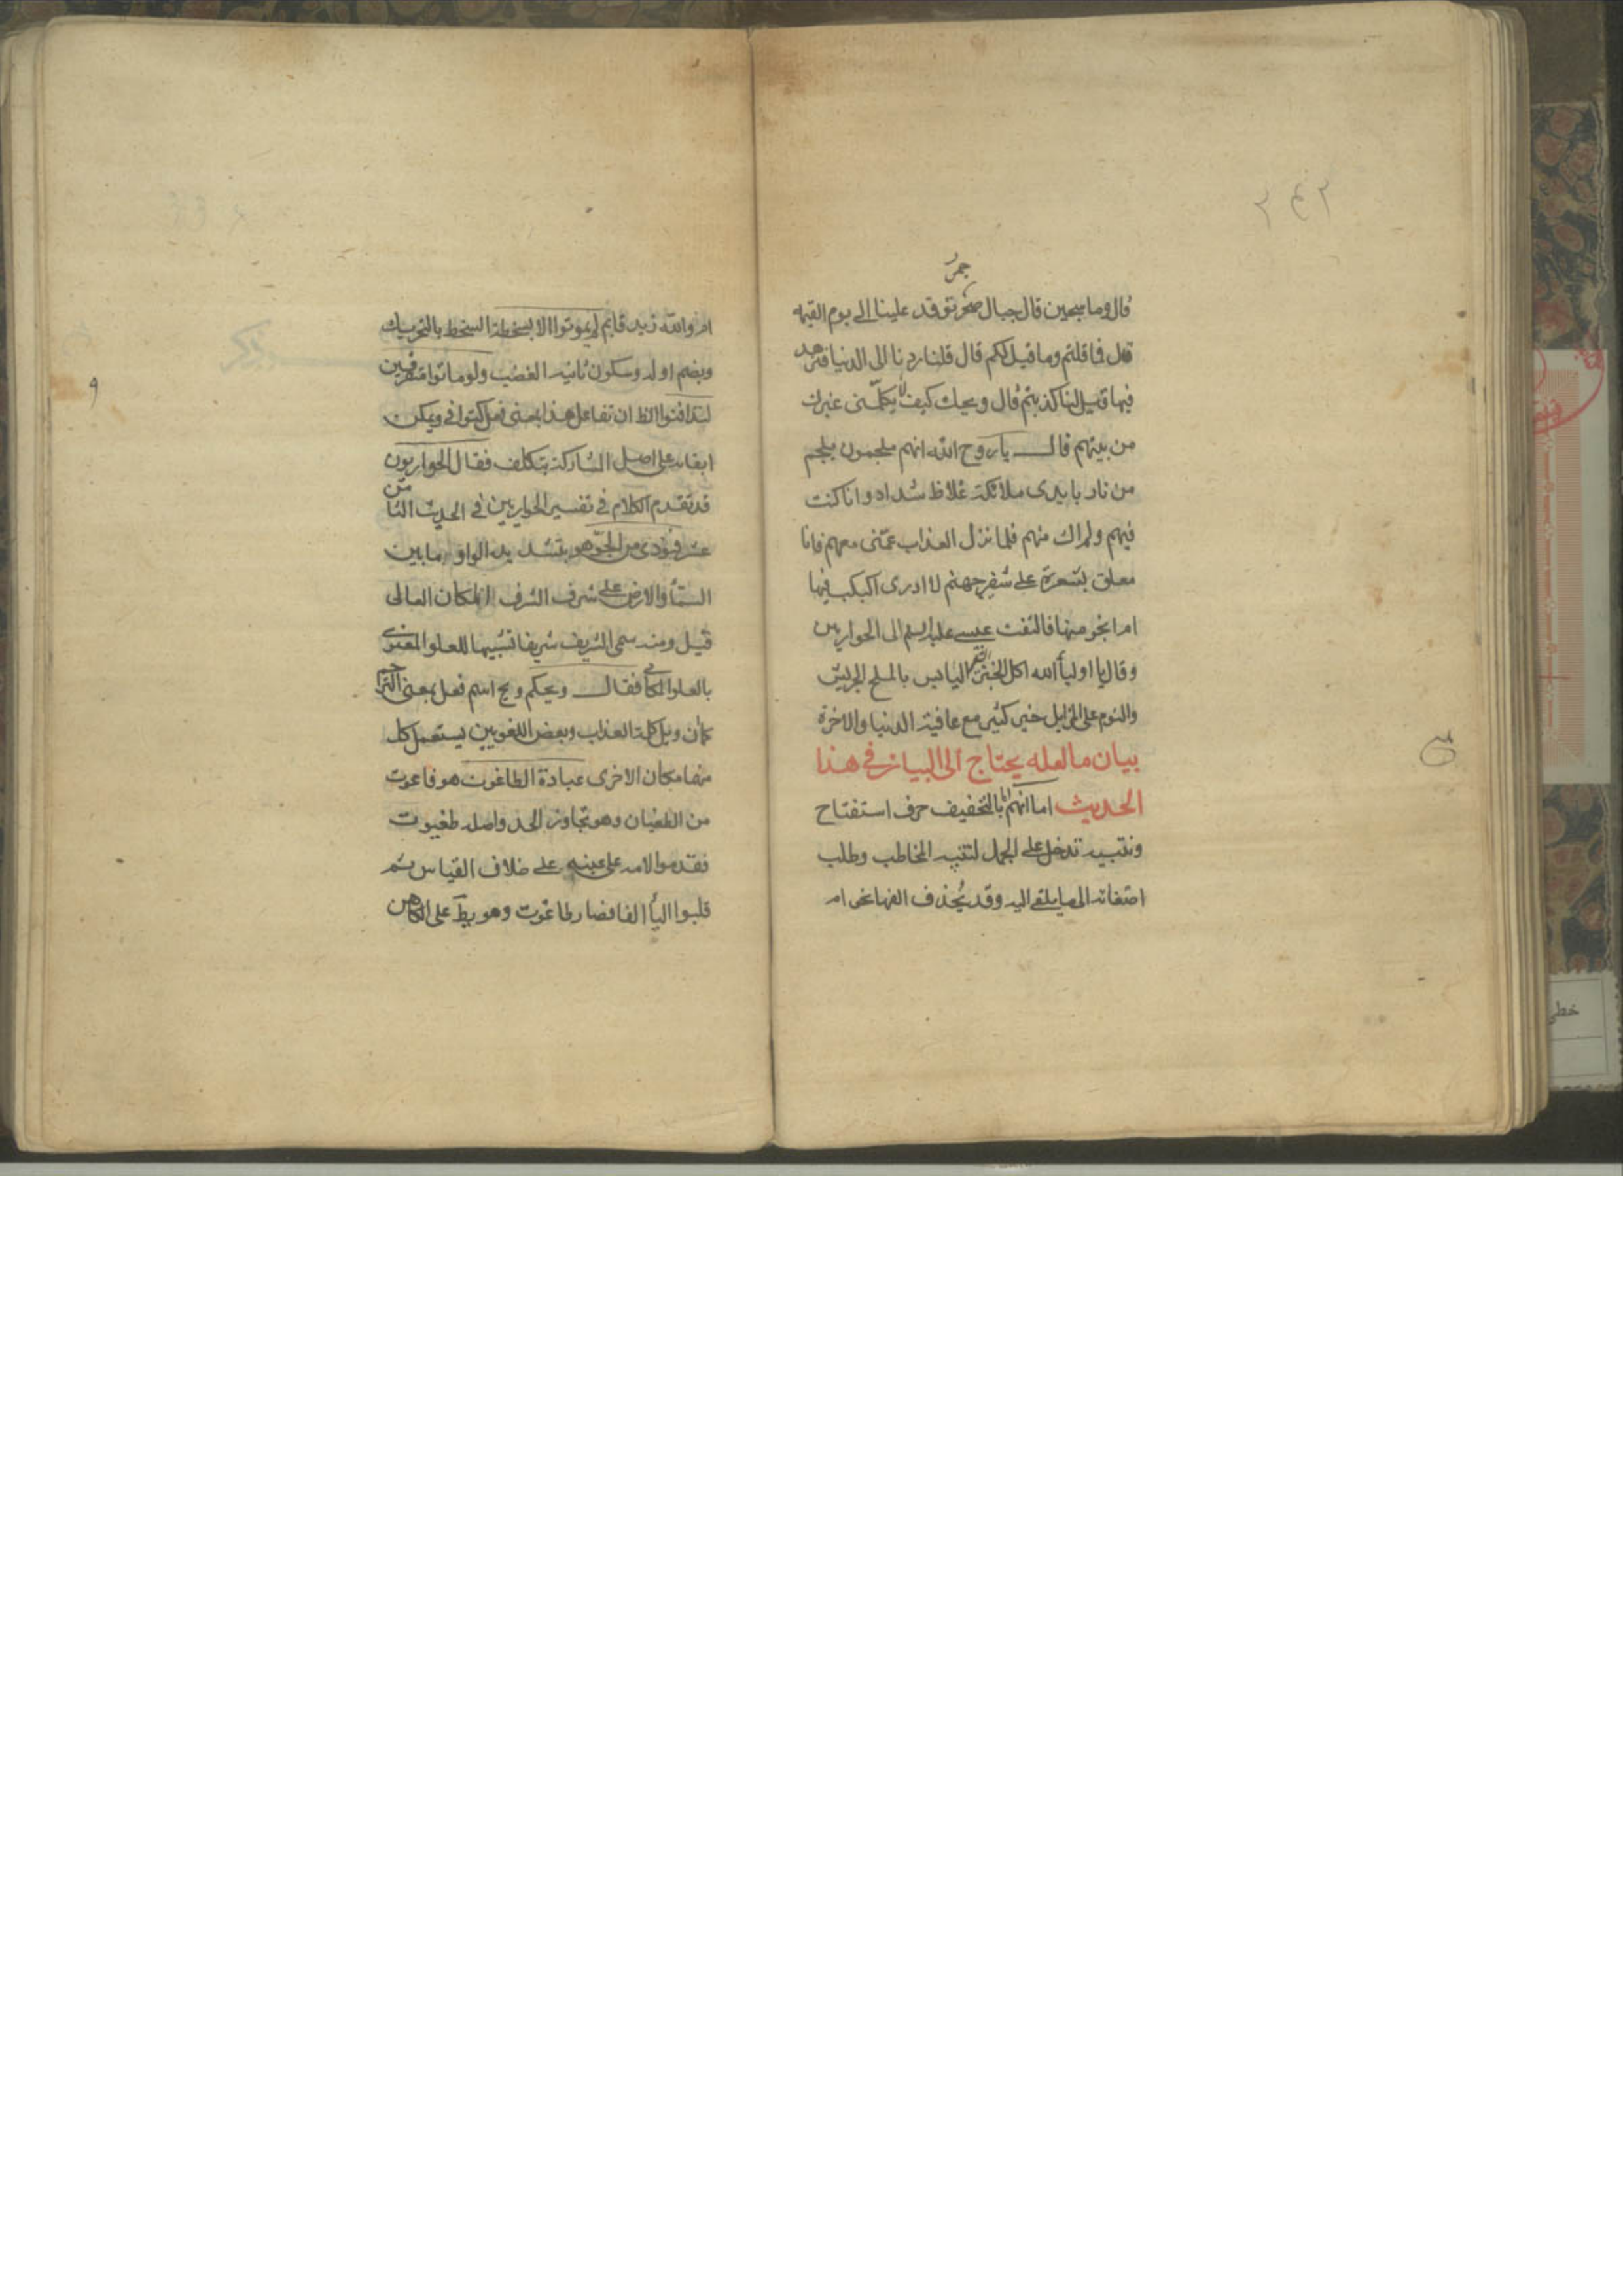 قال وما سجين قال جبال جمر توقد علينا الى يوم القيمه
قال فما قلتم وما قيل لكم قال قلنا ردنا الى الدنيا فنزهد
فيها قيل لنا كذبتم قال ويحك كيف لا يكلمنى غيرك
من بينهم قال يا روح الله انهم ملجمون بلجم
من نار بايدى ملائكة غلاظ شداد وانا كنت
فيهم ولم اك منهم فلما نزل العذاب عمّنى معهم فانا
معلق بشعرة على شفير جهنم لا ادرى اكبكب فيها
ام انجو منها فالتفت عيسى عليه السلم الى الحواريين
وقال يا اولياء الله اكل الخبز اليابس بالملح الجريش
والنوم على المزابل خير كثير مع عافية الدنيا والاخرة
بيان ما لعله يحتاج الى البيان فى هذا
الحديث اما انهم اما بالتخفيف حرف استفتاح
وتنبيه تدخل على الجمل لتنبيه المخاطب وطلب
اصغائه الى ما يلقى اليه وقد يُحذف الفها نحو ام
ام والله زيد قايم لم يموتوا الا بسخطة السخط بالتحريك
وبضم اوله وسكون ثانيه الغضب ولو ماتوا متفرقين
لتدافنوا الظ ان تفاعل هذا بمعنى فعل كتوانى ويمكن
ابقاءه على اصل المشاركة بتكلف فقال الحواريون
قد تقدم الكلام فى تفسير الحواريين فى الحديث الثامن
عشر فنودى من الجوّ هو بتشديد الواو ما بين
السماء والارض على شرف الشرف المكان العالى
قيل ومنه سمى الشريف شريفا تشبيها للعلو المعنوى
بالعلو المكانى فقال ويحكم ويح اسم فعل بمعنى الترحم
كما ان ويل كلمة العذاب وبعض اللغويين يستعمل كل
منهما مكان الاخرى عبادة الطاغوت هو فاعوت
من الطغيان وهو تجاوز الحد واصله طغيوت
فقدموا لامه على عينه على خلاف القياس ثم
قلبوا الياء الفا فصار طاغوت وهو يط على الكاهن